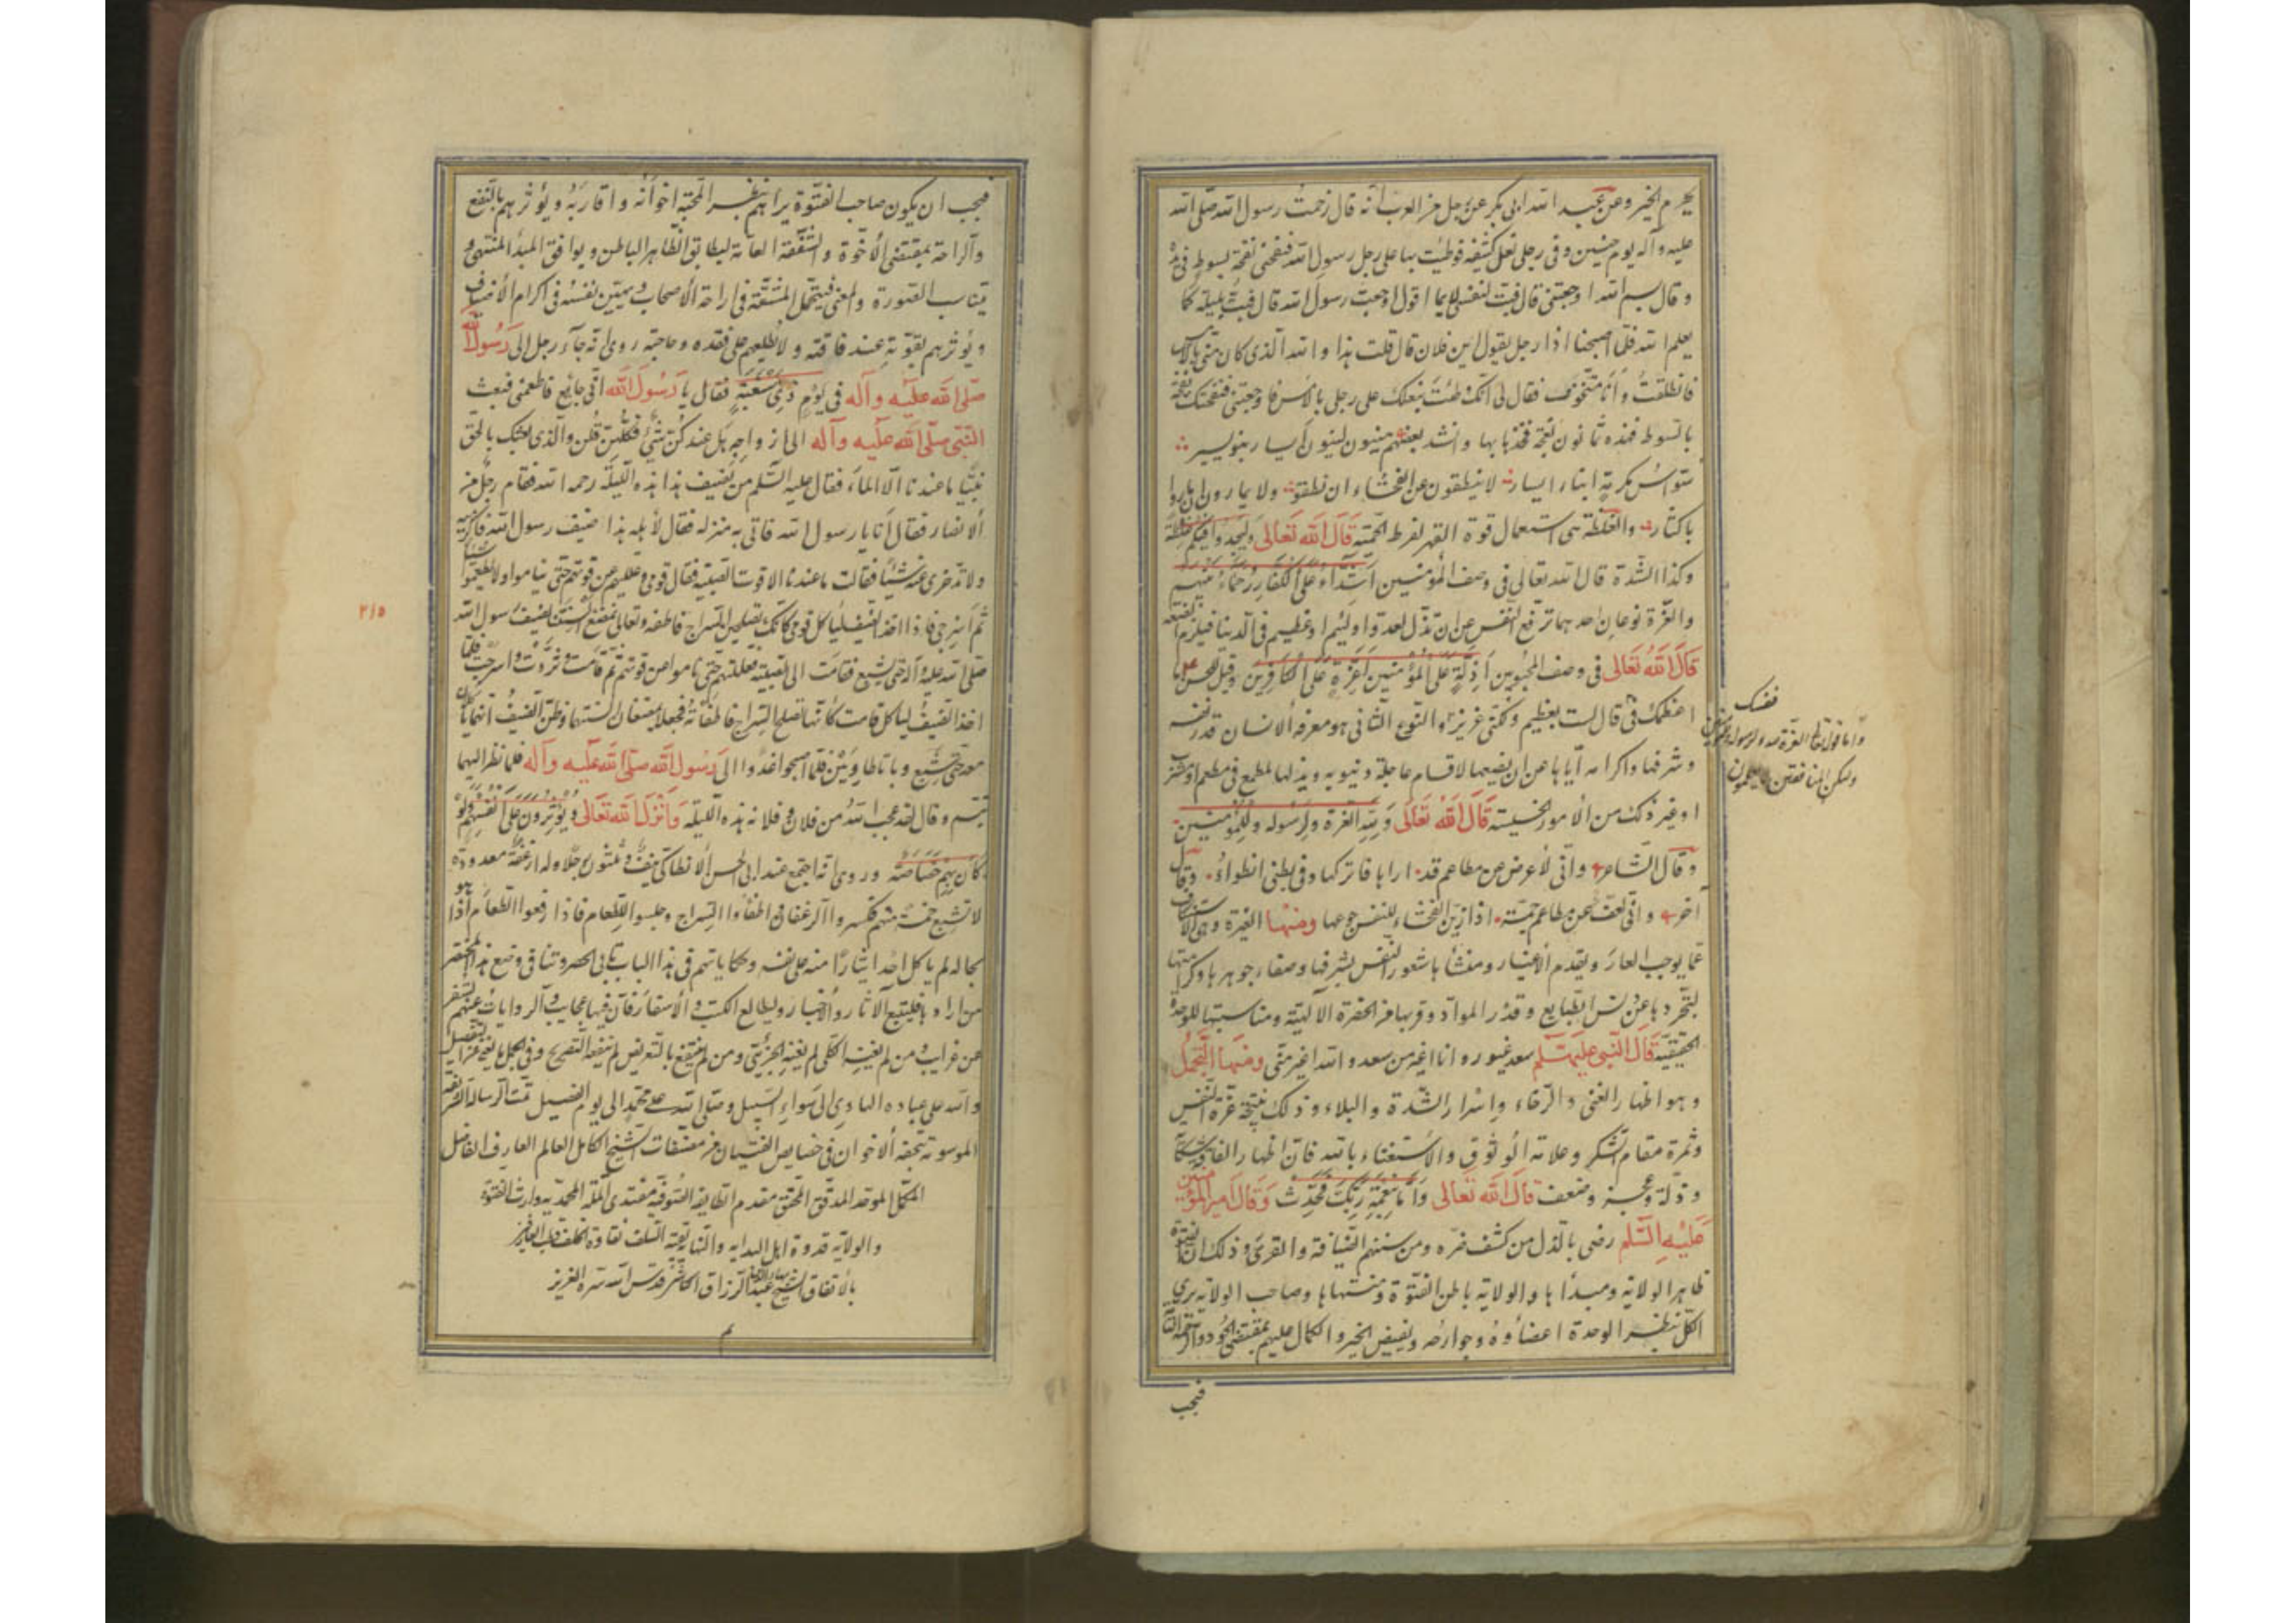 يحرم الخير وعن عبد الله ابى بكر عن رجل من العرب انه قال زحمت رسول الله صلى الله
عليه وآله يوم حنين وفى رجلى نعل كثيفة فوطئت بها على رجل رسول الله فنفحنى نفحة بسوط فى يده
وقال بسم الله اوجعتنى قال فبت لنفسى لايما اقول اوجعت رسول الله قال فبت بليلة كما
يعلم الله فلما اصبحنا اذا رجل يقول اين فلان قال قلت هذا والله الذى كان منى بالامس
فانطلقت وانا متخوف فقال لى انك وطئت بنعلك على رجلى بالامس فاوجعتنى فنفحتك نفحة
بالسوط فهذه ثمانون نعجة فخذها بها وانشد بعضهم هينون لينون ايسار بنو يسر
سواس مكرمة ابناء ايسار لا ينطقون عن الفحشاء ان نطقوا ولا يمارون ان ماروا
باكثار والغلظة هى استعمال قوة القهر لفرط الحمية قال الله تعالى وليجدوا فيكم غلظة
وكذا الشدة قال الله تعالى فى وصف المؤمنين اشداء على الكفار رحماء بينهم
والعزة نوعان احدهما ترفع النفس عن ان تذل لعدو او لئيم او عظيم فى الدنيا فيلزم الضعة
قال الله تعالى فى وصف المحبوبين اذلة على المؤمنين اعزة على الكافرين وقيل للحسن ما
اعظمك فى قال لست بعظيم ولكنى عزيز والنوع الثانى هو معرفة الانسان قدر نفسه
وشرفها واكرامه اياها عن ان يضعها لاقسام عاجلة دنيوية ويذلها لمطمع فى مطعم او مشرب
او غير ذلك من الامور الخسيسة قال الله تعالى ولله العزة ولرسوله وللمؤمنين
وقال الشاعر وانى لاعرض عن مطاعم قد اراها فاتركها وفى بطنى انطواء وقال
آخر وانى لعف عن مطاعم جمة اذا زين الفحشاء للنفس جوعها ومنها الغيرة وهى الاستنكاف
عما يوجب العار ويقدم الاغيار ومنشأها شعور النفس بشرفها وصفاء جوهرها وكرامتها
لتجردها عن دنس الطبايع وقذر المواد وقربها من الحضرة الالهية ومناسبتها للوحدة
الحقيقية قال النبى عليه السلم سعد غيور وانا اغير من سعد والله اغير منى ومنها التجمل
وهو اظهار الغنى والرخاء واسرار الشدة والبلاء وذلك نتيجة عزة النفس
وثمرة مقام الشكر وعلامة الوثوق والاستغناء بالله فان اظهار الفاقة شكاية
وذلة وعجز وضعف قال الله تعالى واما بنعمة ربك فحدث وقال امير المؤمنين
عليه السلم رضى بالذل من كشف ضره ومن سننهم الضيافة والقرى وذلك ان الفتوة
ظاهر الولاية ومبدأها والولاية باطن الفتوة ومنتهاها وصاحب الولاية يرى
الكل بنظر الوحدة اعضاؤه وجوارحه ويفيض الخير والكمال عليهم بمقتضى الجود والرحمة
فيجب
واما قوله تعالى العزة لله ولرسوله وللمؤمنين
ولكن المنافقين لا يعلمون
فيجب ان يكون صاحب الفتوة يراهم بنظر المحبة اخوانه واقاربه ويؤثرهم بالنفع
والراحة بمقتضى الاخوة والشفقة العامة ليطابق الظاهر الباطن ويوافق المبدأ المنتهى و
يناسب الصورة والمعنى فيتحمل المشقة فى اراحة الاصحاب ويمتهن نفسه فى اكرام الاضياف
ويؤثرهم بقوته عند فاقته ولا يطلعهم على فقده وحاجته روى انه جاء رجل الى رسول الله
صلى الله عليه وآله فى يوم ذى مسغبة فقال يا رسول الله انى جائع فاطعمنى فبعث
النبى صلى الله عليه وآله الى ازواجه هل عندكن شئ فكلهن قلن والذى بعثك بالحق
نبيا ما عندنا الا الماء فقال عليه السلم من يضيف هذا هذه الليلة رحمه الله فقام رجل من
الانصار فقال انا يا رسول الله فاتى به منزله فقال لاهله هذا ضيف رسول الله فاكرميه
ولا تدخرى عنه شيئا فقالت ما عندنا الا قوت الصبية فقال قومى وعلليهم عن قوتهم حتى يناموا ولا يطعموا شيئا
ثم اسرجى فاذا اخذ الضيف لياكل قومى كانك تصلحين السراج فاطفئه وتعالى نمضغ السنتنا لضيف رسول الله
صلى الله عليه وآله حتى يشبع فقامت الى الصبية فعللتهم حتى ناموا عن قوتهم ثم قامت وثردت واسرجت فلما
اخذ الضيف لياكل قامت كانها تصلح السراج فاطفاته فجعلا يمضغان السنتهما وظن الضيف انهما ياكلان
معه حتى شبع وباتا طاويين فلما اصبحوا غدوا الى رسول الله صلى الله عليه وآله فلما نظر اليهما
تبسم وقال لقد عجب الله من فلان وفلانة هذه الليلة وانزل الله تعالى ويؤثرون على انفسهم ولو
كان بهم خصاصة وروى انه اجتمع عند ابى الحسن الانطاكى نيف وثلثون رجلا وله ارغفة معدودة
لا تشبع خمسة منهم فكسروا الرغفان واطفأوا السراج وجلسوا للطعام فاذا رفعوا الطعام اذا هو
بحاله لم ياكل احد ايثارا منه على نفسه وحكاياتهم فى هذا الباب تابى الحصر وتنافى وضع هذا المختصر
من ارادها فليتتبع الاثار والاخبار وليطالع الكتب والاسفار فان فيها عجايب والروايات عنهم تسفر
عن غرايب ومن لم يغنه الكلى لم يغنه الجزئى ومن لم ينتفع بالتعريض لم ينفعه التصريح وفى الجمل ما يغنى عن التفصيل
والله على عباده الهادى الى سواء السبيل وصلى الله على محمد الى يوم الفصيل تمت الرسالة الشريفة
الموسومة بتحفة الاخوان فى خصايص الفتيان من مصنفات الشيخ الكامل العالم العارف الفاضل
المكمل الموحد المدقق المحقق مقدم الطايفة الصوفية مقتدى الملة المحمدية وارث الفتوة
والولاية قدوة اهل البداية والنهاية بقية السلف نقاوة الخلف
بالاتفاق الشيخ عبد الرزاق الكاشى قدس الله سره العزيز
م
٢١٥